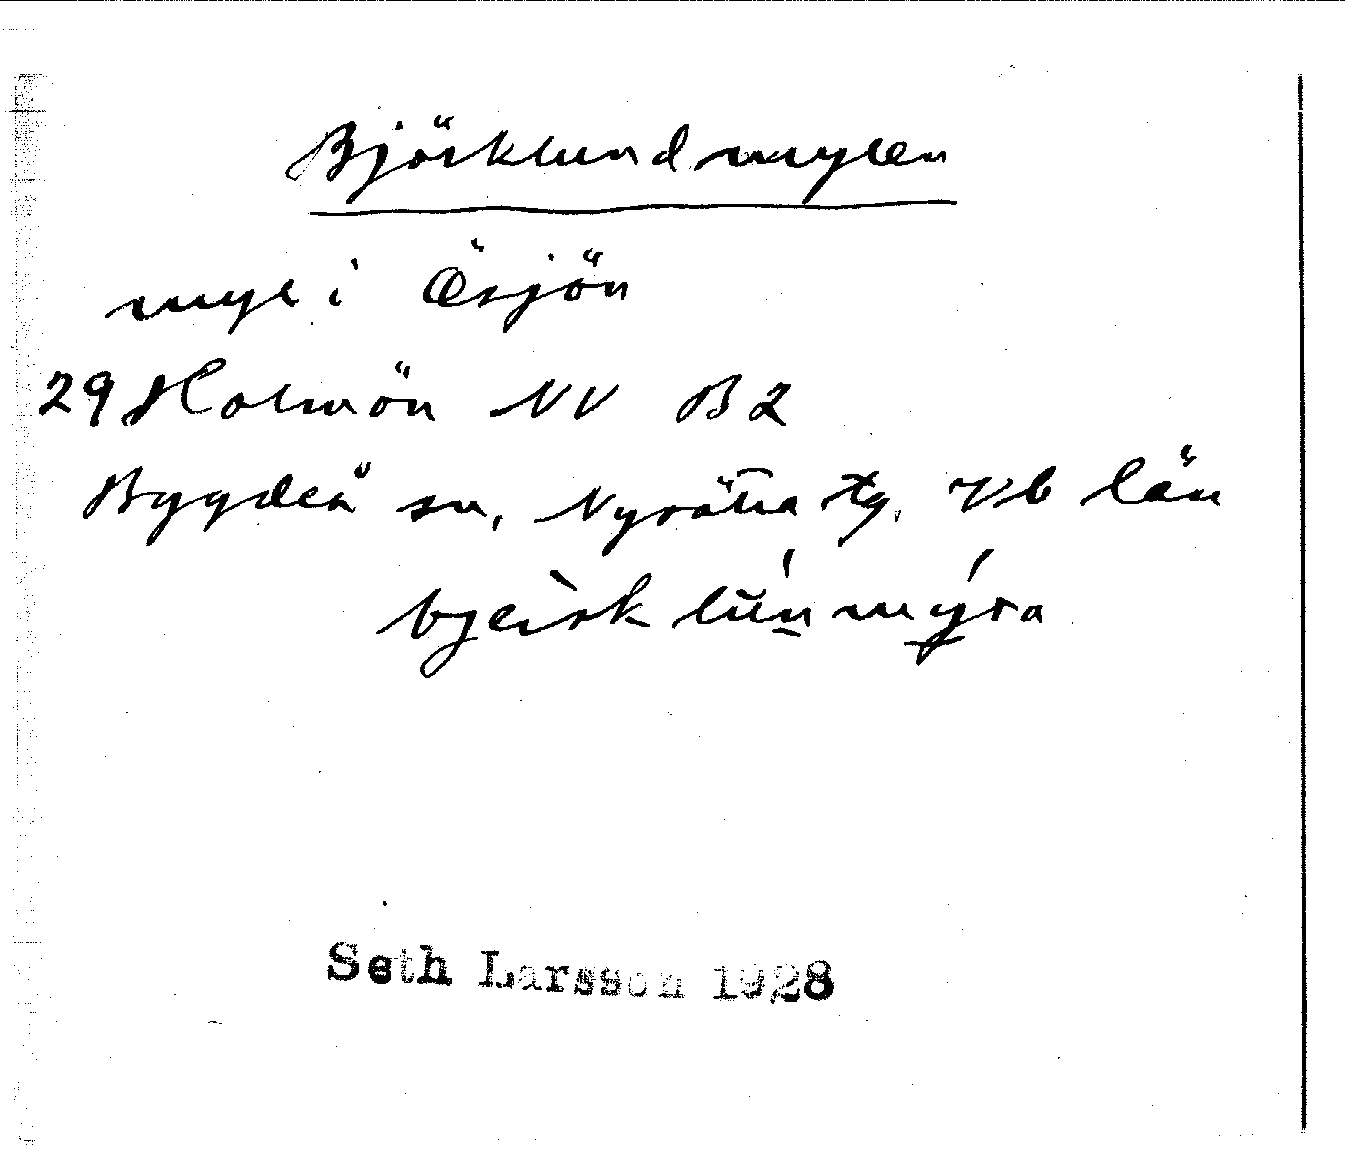 Björklundmyren
myr i Ösjön
29 Holmön NV B2
Bygdeå sn, Nysätra tg, Vb län
bjœ̀rsk lūńmýra
Seth Larsson 1928